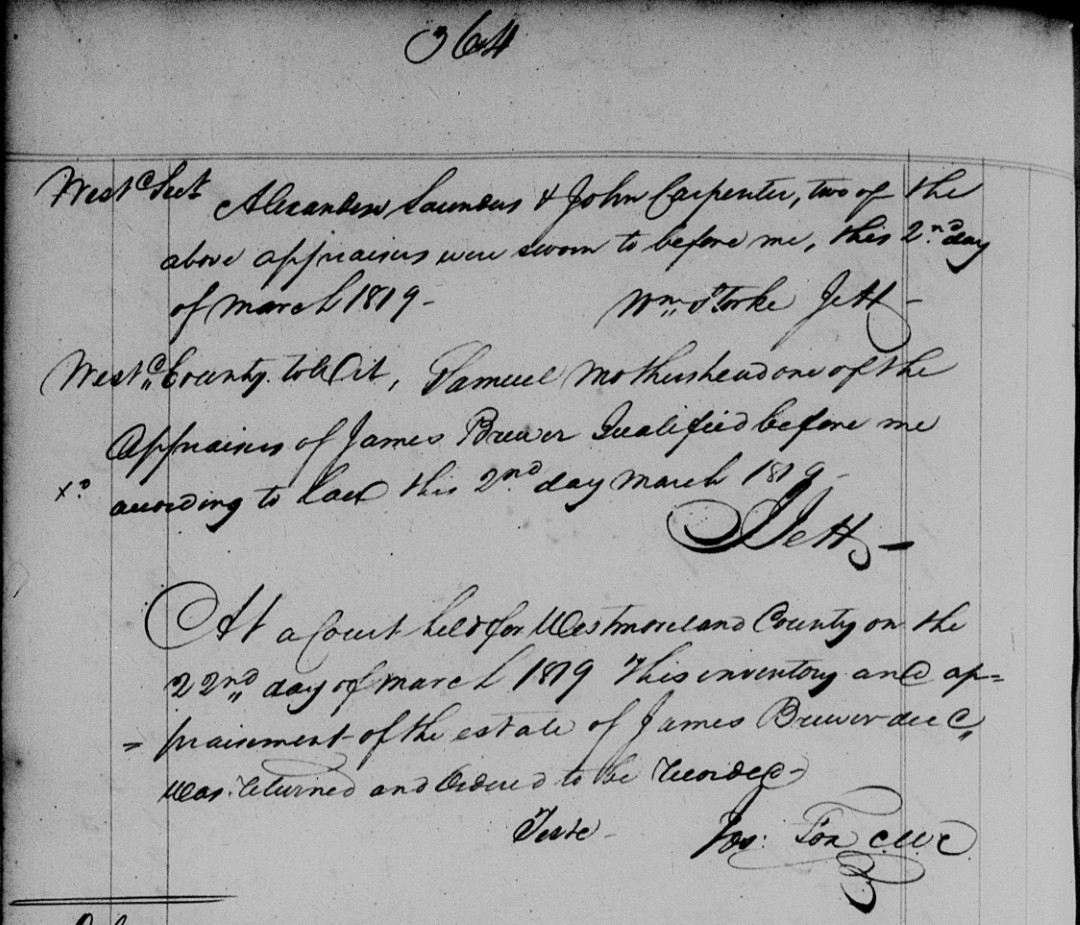 364
Westd Sect Alexander Saunders & John Carpenter, two of the
above appraisers were sworn to before me, this 2nd day
of March 1819 -
Wm. Storke Jett -
Westd County to Wit, Samuel Mothershead one of the
Appraisers of James Brewer Qualified before me
according to Law this 2nd day March 1819 -
Jett -
At a Court held for Westmoreland County on the
22nd day of March 1819 This inventory and ap=
= praisement of the estate of James Brewer decd,
Was returned and Ordered to be Recorded -
Teste - Jos: Fox C.W.C